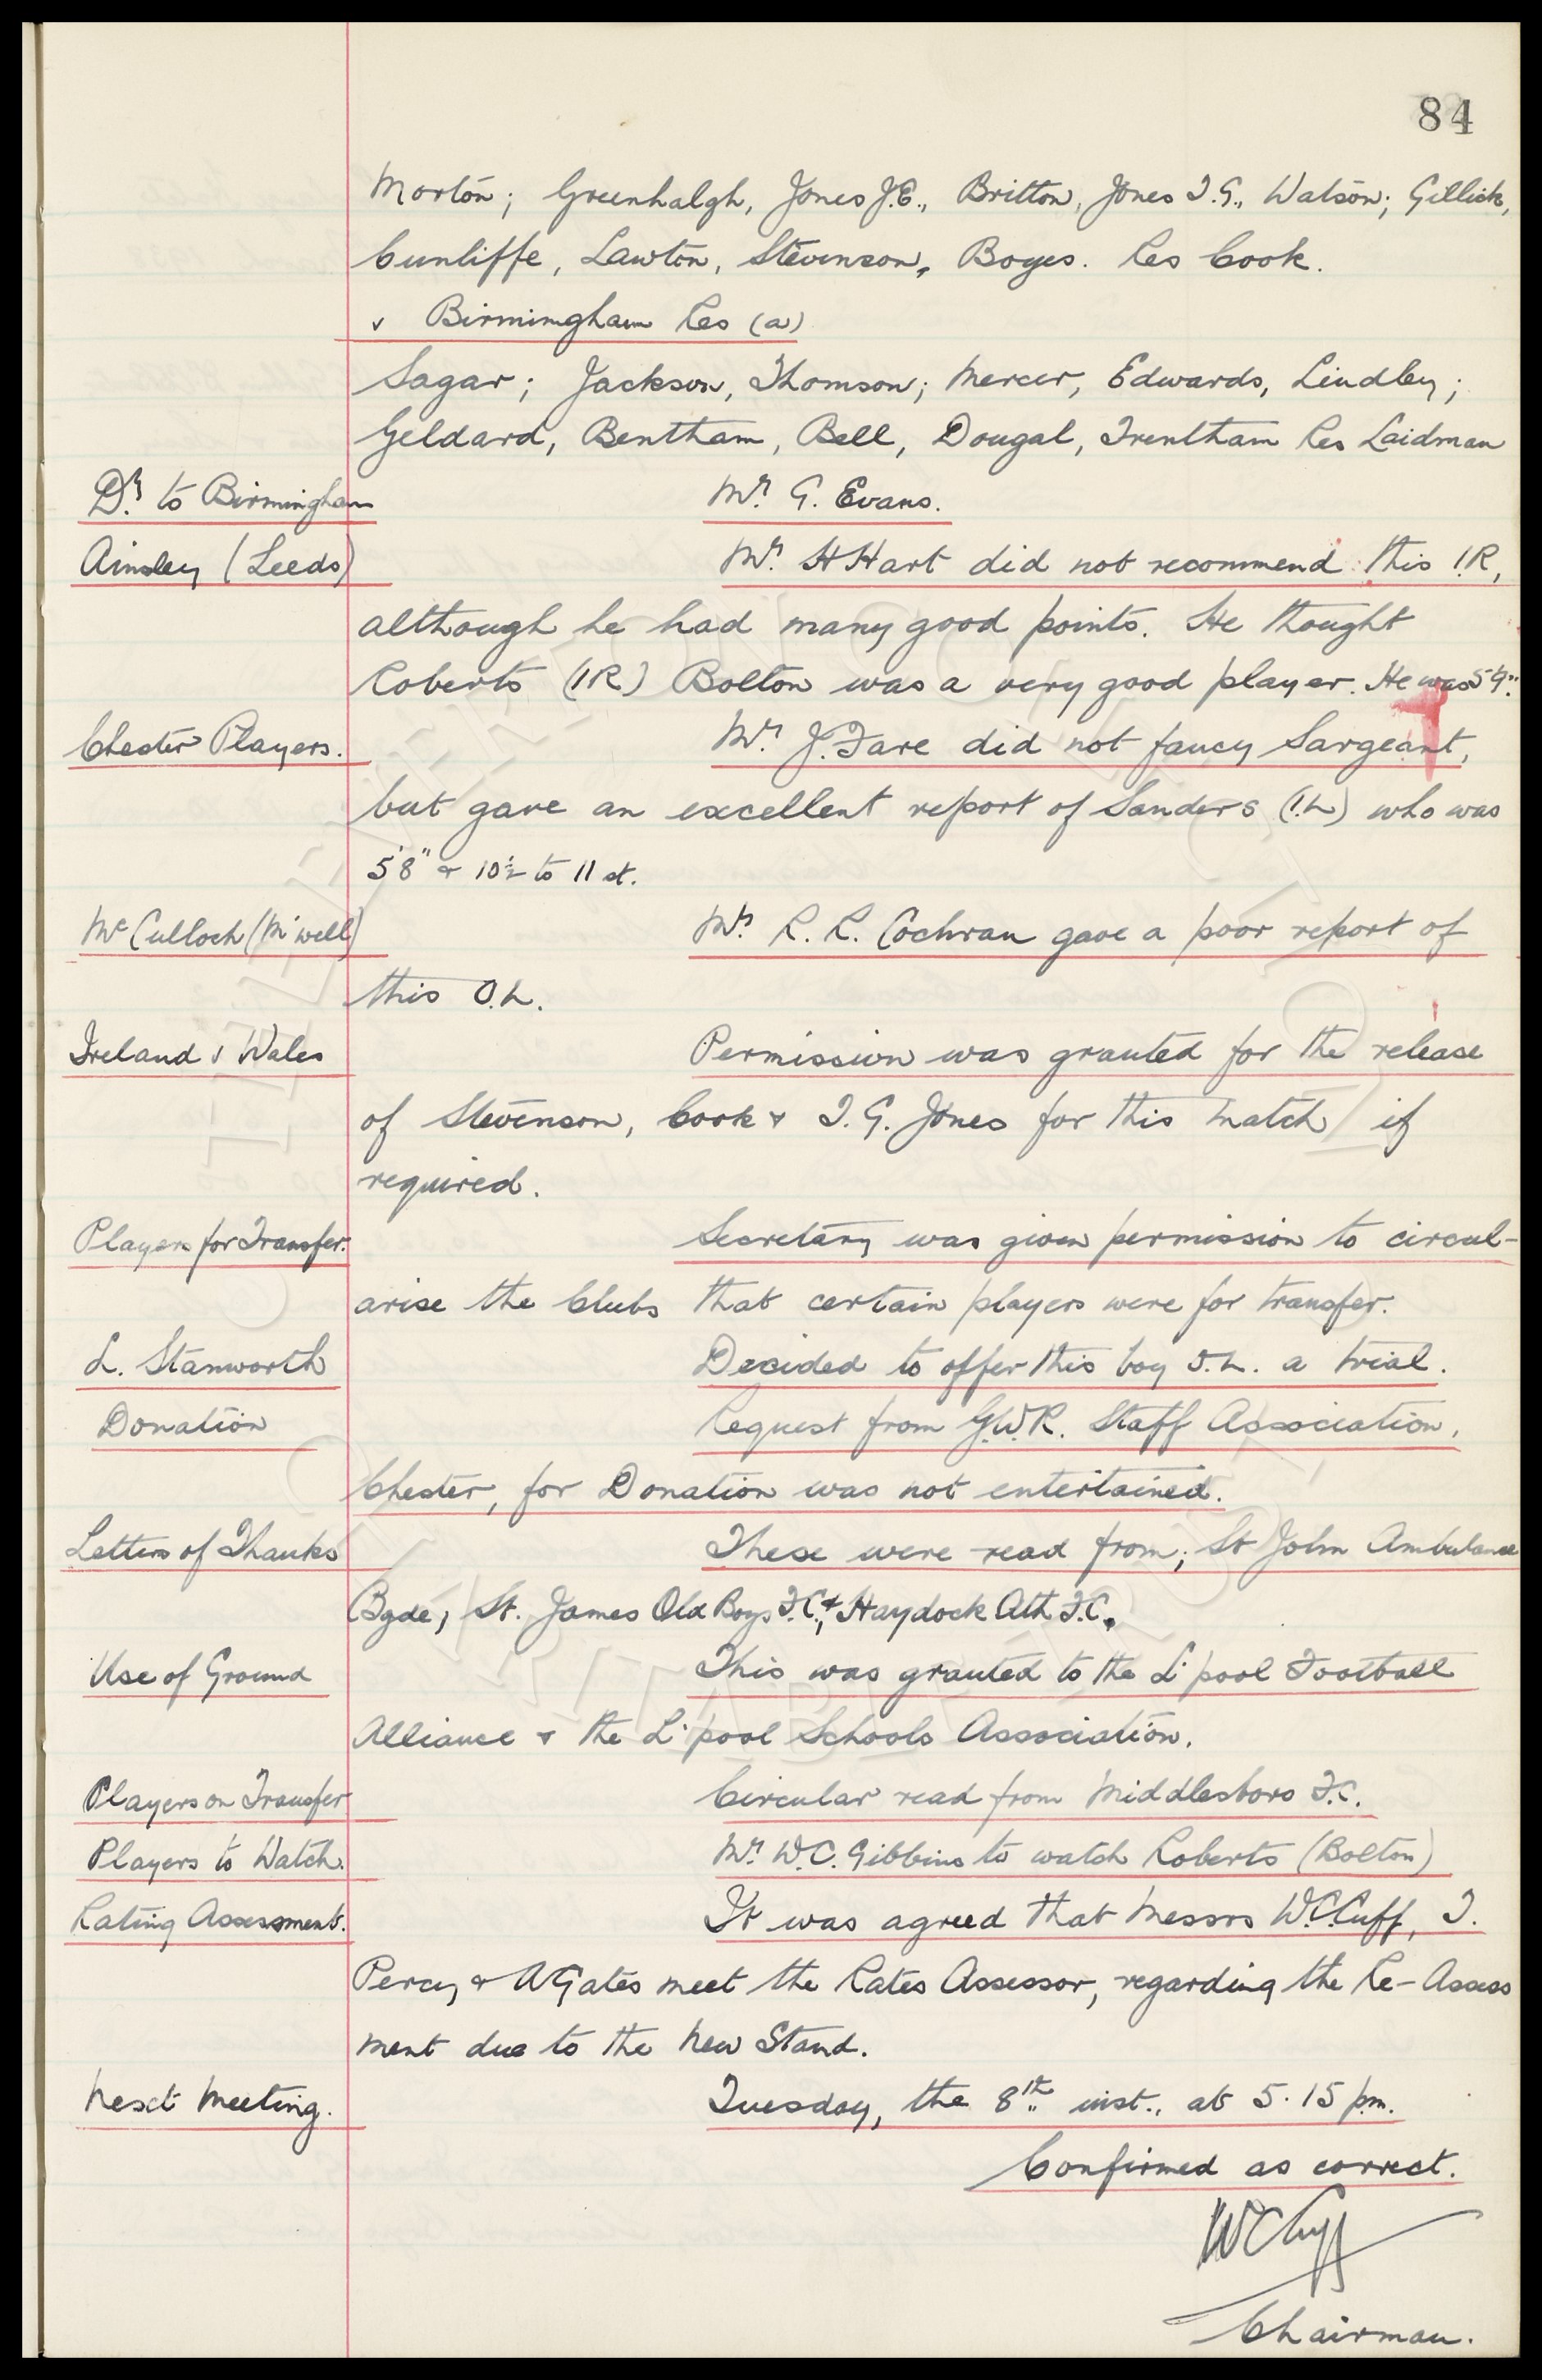 84
Morton; Greenhalgh, Jones J.E., Britton, Jones T.G., Watson; Gillick,
Cunliffe, Lawton, Stevenson, Boyes. Res Cook.
v Birmingham Res (a)
Sagar; Jackson, Thomson; Mercer, Edwards, Lindley;
Geldard, Bentham, Bell, Dougal, Trentham Res Laidman
Dr. to Birmingham Mr. G. Evans.
Ainsley (Leeds) Mr. H Hart did not recommend this I.R,
although he had many good points. He thought
Roberts (IR) Bolton was a very good player. He was 5'9".
Chester Players. Mr. J. Fare did not fancy Sargeant,
but gave an excellent report of Sanders (I.L) who was
5'8" & 10½ to 11 st.
McCulloch (M'well) Mr. R. R. Cochran gave a poor report of
this O.L.
Ireland v Wales Permission was granted for the release
of Stevenson, Cook & T.G. Jones for this match if
required.
Players for Transfer. Secretary was given permission to circul-
arise the Clubs that certain players were for transfer.
L. Stanworth Decided to offer this boy O.L. a trial.
Donation Request from G.W.R. Staff Association,
Chester, for Donation was not entertained.
Letters of Thanks These were read from; St John Ambulance
Bgde, St. James Old Boys F.C., & Haydock Ath F.C.
Use of Ground This was granted to the L'pool Football
Alliance & the L'pool Schools Association.
Players on Transfer Circular read from Middlesboro F.C.
Players to Watch. Mr. W.C. Gibbins to watch Roberts (Bolton)
Rating Assessment. It was agreed that Messrs W.C. Cuff, T.
Percy & A Gates meet the Rates Assessor, regarding the Re-Assess
ment due to the New Stand.
Next Meeting. Tuesday, the 8th inst., at 5.15 p.m.
Confirmed as correct.
WC Cuff
Chairman.